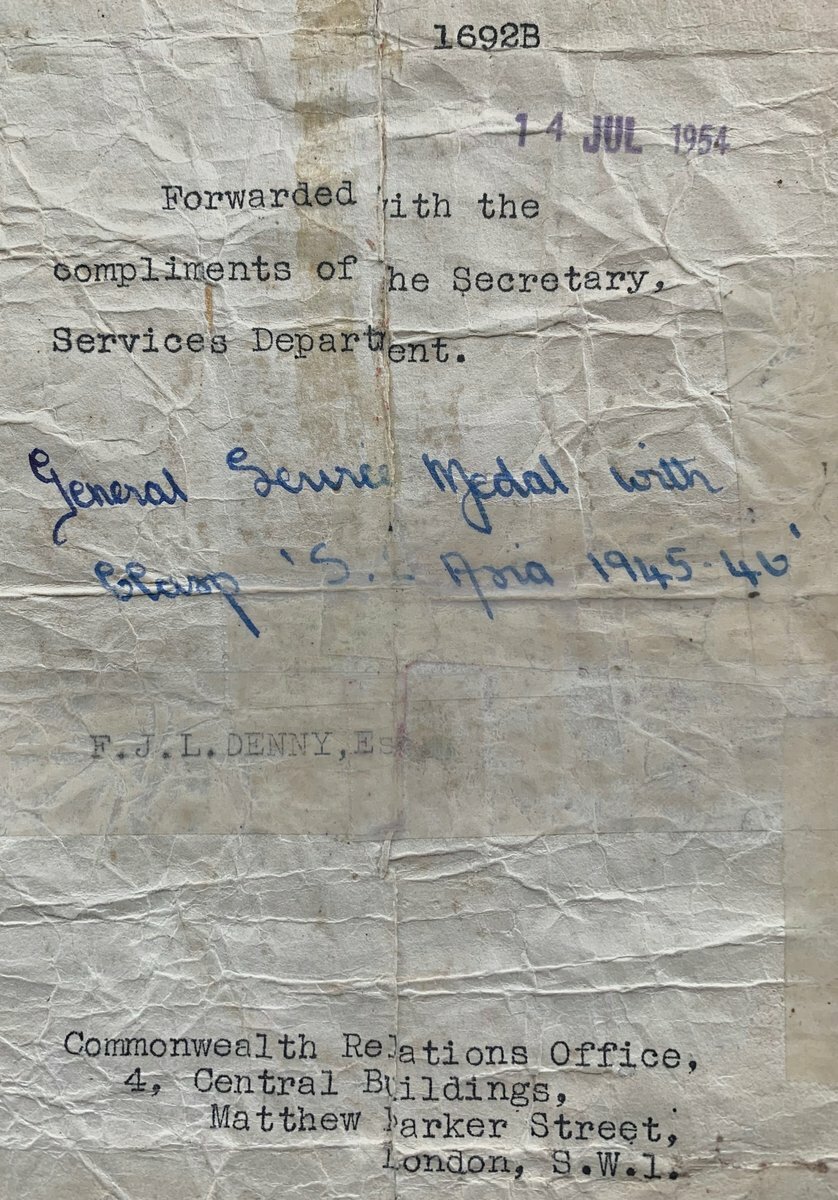 1692B
14 JUL 1954
Forwarded with the
compliments of the Secretary,
Services Department.
General Service Medal with
Clasp 'S.E. Asia 1945-46'
F.J.L.DENNY,Esq.
Commonwealth Relations Office,
4, Central Buildings,
Matthew Parker Street,
London, S.W.1.